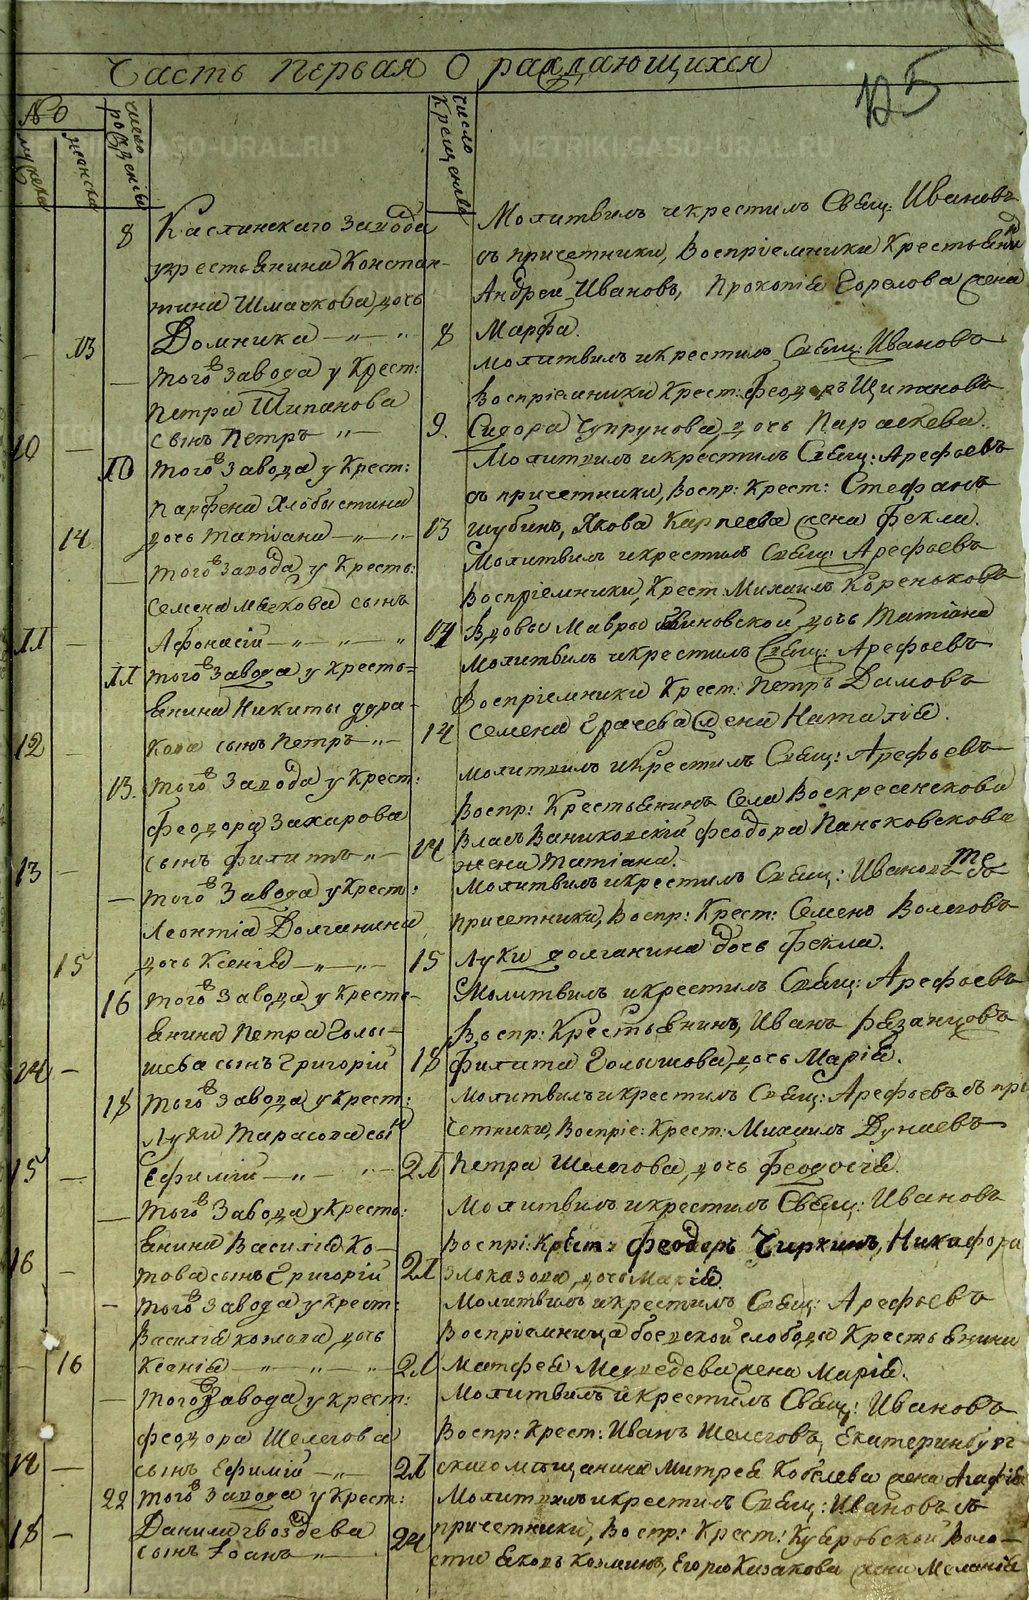 Часть первая О раждающихся
125
№
мужеска
женска
число рожденія
число крещенія
8 Каслинскаго завода
у крестьянина Констан-
тина Шмачкова дочь
13 Домника 8
Молитвилъ и крестилъ Свящ: Ивановъ
съ причетники, Воспріемники Крестьянинъ
Андрей Ивановъ, Прокопія Горелова жена
Марфа.
того завода у Крест:
Петра Шипанова
10 — сынъ Петръ 9.
Молитвилъ и крестилъ Свящ: Ивановъ
Воспріемники Крест: Феодоръ Щипановъ
Сидора Чупрунова дочь Параскева.
10 того завода у Крест:
Парфена Хлобыстина
14 дочь Татіана 13
Молитвилъ и крестилъ Свящ: Арефьевъ
съ причетники, Воспр: Крест: Стефанъ
Шубинъ, Якова Карпеева жена Фекла.
— того завода у Кресть:
Семена Мякова сынъ
11 — Афонасій 14
Молитвилъ и крестилъ Свящ: Арефьевъ
Воспріемники, Крест: Михаилъ Кореньковъ
Вдовы Мавры дочь Татіана
11 того завода у кресть-
янина Никиты
12 — сынъ Петръ 14
Молитвилъ и крестилъ Свящ: Арефьевъ
Воспріемники Крест: Петръ Дамовъ
Семена Грачева жена Наталія.
13. того завода у Крест:
Феодора Захарова
13 — сынъ Филиппъ 14
Молитвилъ и крестилъ Свящ: Арефьевъ
Воспр: Крестьянинъ Села Воскресенскова
Феодора Паньковскова
жена Татіана.
— того завода у Крест:
Леонтія Долганина
15 дочь Ксенія 15
Молитвилъ и крестилъ Свящ: Ивановъ съ
причетники, Воспр: Крест: Семенъ Волеговъ
Луки Долганина дочь Фекла.
16 того завода у Кресть-
янина Петра Голы-
14 — шева сынъ Григорій 18
Молитвилъ и крестилъ Свящ: Арефьевъ
Воспр: Крестьянинъ Иванъ Рязанцовъ
Филипа Голышова дочь Марія.
18 того завода у Крест:
Луки Тарасова сынъ
15 — Ефимій 21
Молитвилъ и крестилъ Свящ: Арефьевъ съ при
четники, Воспріе: Крест: Михаилъ Дунаевъ
Петра Шелегова, дочь Феодосія.
— того завода у кресть:
янина Василія Ко-
16 това сынъ Григорій 21
Молитвилъ и крестилъ Свящ: Ивановъ
Воспрі: Крест: Феодоръ Чиркинъ, Никафора
Злоказова, дочь Марія
— того завода у Крест:
Василія Котова дочь
16 Ксенія 21
Молитвилъ и крестилъ Свящ: Арефьевъ
Воспріемница боевской слободы Крестьянина
Матфея Медведева жена Марія.
— того завода у крест:
Феодора Шелегова
17 — сынъ Ефимій 21
Молитвилъ и крестилъ Свящ: Ивановъ
Воспр: Крест: Иванъ Шелеговъ, Екатеринбург
скаго мещанина Митрея Кобелева жена Агафія
22 того завода у Крест:
Данила Гвоздева
18 — сынъ Іоанъ 24
Молитвилъ и крестилъ Свящ: Ивановъ съ
причетники, Воспр: Крест: Куяровской Воло-
сти Яковъ Козминъ, Егора Казакова жена Меланія